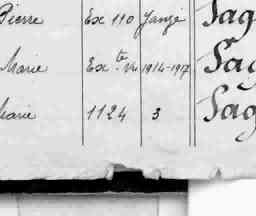 Pierre Ex 110 Jangé Sag
Marie Exte Vve 1914-1917 Sag
Marie 1124 3 Sag